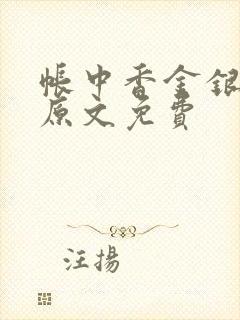 帳中香金銀
原文免費
汪揚